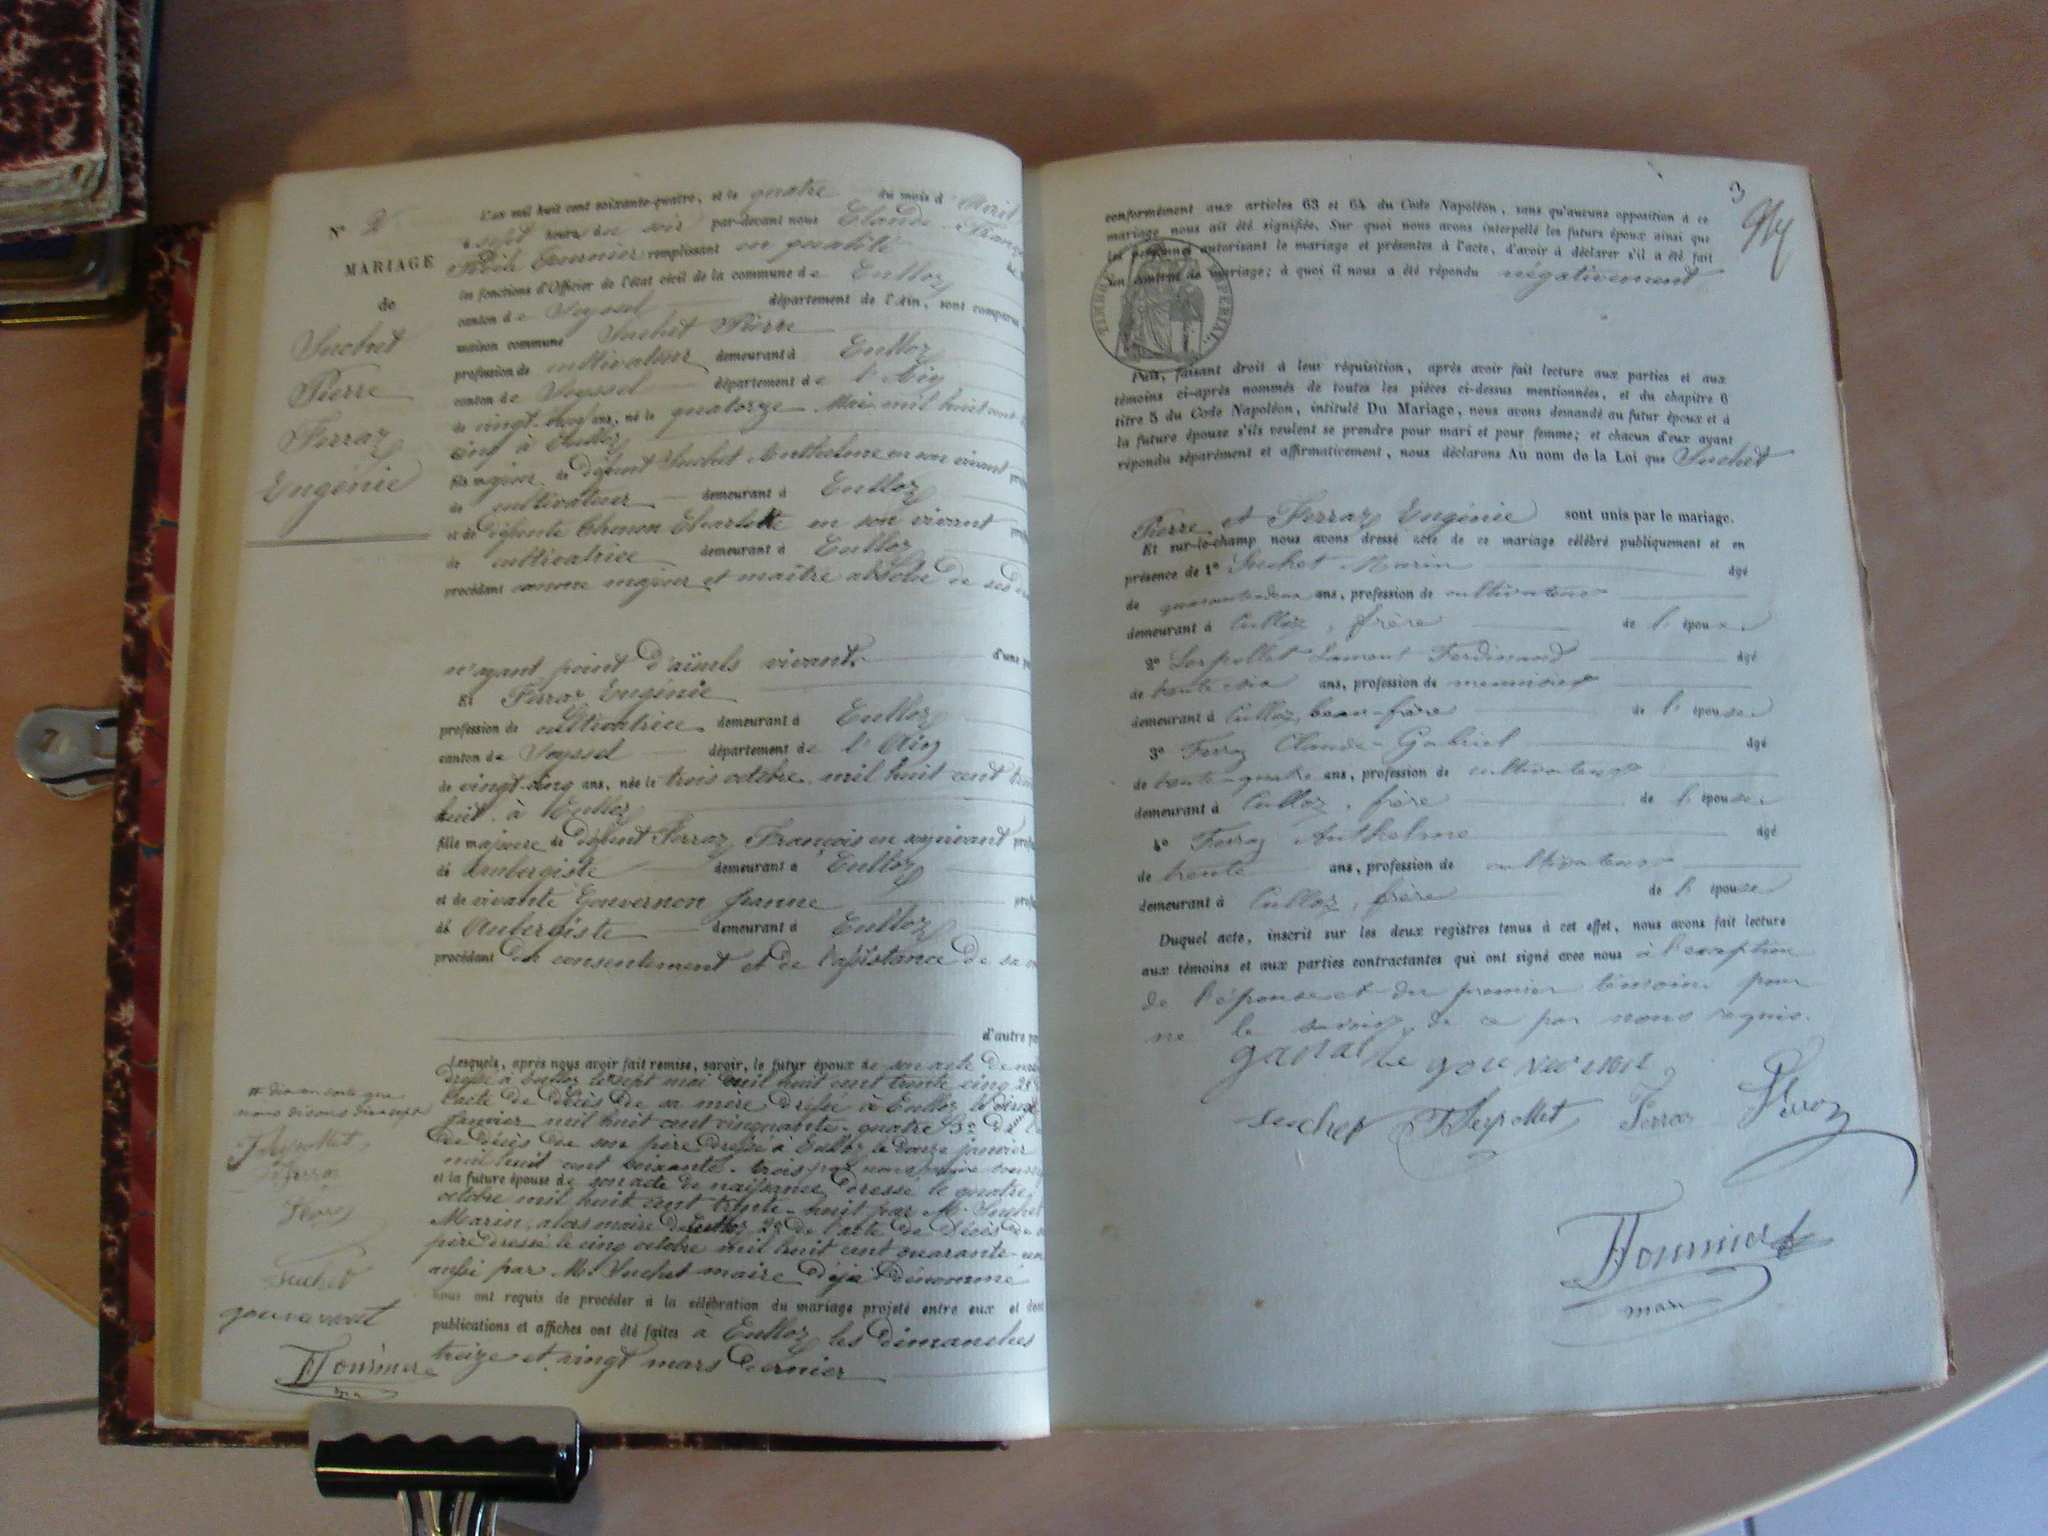 N° 2
MARIAGE
de
Suchet
Pierre
Ferraz
Eugénie
L'an mil huit cent soixante-quatre, et le quatre du mois d'Avril
à sept heures du soir par-devant nous Claude François
Fournier remplissant en qualité
les fonctions d'Officier de l'état civil de la commune de Culloz
canton de Seyssel département de l'Ain, sont comparus
maison commune Suchet Pierre
profession de cultivateur demeurant à Culloz
canton de Seyssel département de l'Ain
de vingt-huit ans, né le quatorze Mai mil huit cent
cinq à Culloz
fils majeur de défunt Suchet Anthelme en son vivant
de cultivateur demeurant à Culloz
et de défunte Thenon Charlotte en son vivant
de cultivatrice demeurant à Culloz
procédant comme majeur et maître absolu de ses
n'ayant point d'aïeuls vivant. d'une
Et Ferraz Eugénie
profession de cultivatrice demeurant à Culloz
canton de Seyssel département de l'Ain
de vingt-cinq ans, née le trois octobre mil huit cent
huit à Culloz
fille majeure de défunt Ferraz François en son vivant
de Aubergiste demeurant à Culloz
et de vivante Gouvernon Jeanne
de Aubergiste demeurant à Culloz
procédant du consentement et de l'assistance de sa
d'autre
Lesquels, après nous avoir fait remise, savoir, le futur époux de son acte de
dressé à Culloz le sept mai mil huit cent trente cinq 2°
l'acte de décès de sa mère dressé à Culloz le
janvier mil huit cent cinquante-quatre 3° de
de décès de son père dressé à Culloz le douze janvier
mil huit cent soixante-trois par nous maire
et la future épouse de son acte de naissance dressé le quatre
octobre mil huit cent trente-huit par M. Suchet
Marin, alors maire de Culloz 2° de l'acte de décès de
père dressé le cinq octobre mil huit cent quarante-
aussi par M. Suchet maire déjà dénommé
Nous ont requis de procéder à la célébration du mariage projeté entre eux et dont
publications et affiches ont été faites à Culloz les dimanches
treize et vingt mars dernier
nous disons dix-sept
FSerpollet
Ferraz
Ferraz
Suchet
gouvernont
Fournier
3
conformément aux articles 63 et 64 du Code Napoléon, sans qu'aucune opposition à ce
mariage nous ait été signifiée. Sur quoi nous avons interpellé les futurs époux ainsi que
les personnes autorisant le mariage et présentes à l'acte, d'avoir à déclarer s'il a été fait
un contrat de mariage; à quoi il nous a été répondu négativement
TIMBRE IMPERIAL
Puis, faisant droit à leur réquisition, après avoir fait lecture aux parties et aux
témoins ci-après nommés de toutes les pièces ci-dessus mentionnées, et du chapitre 6
titre 5 du Code Napoléon, intitulé Du Mariage, nous avons demandé au futur époux et à
la future épouse s'ils veulent se prendre pour mari et pour femme; et chacun d'eux ayant
répondu séparément et affirmativement, nous déclarons Au nom de la Loi que Suchet
Pierre et Ferraz Eugénie sont unis par le mariage.
Et sur-le-champ nous avons dressé acte de ce mariage célébré publiquement et en
présence de 1° Suchet Marin âgé
de quarante-deux ans, profession de cultivateur
demeurant à Culloz, frère de l'époux
2° Serpollet Laurent Ferdinand âgé
de trente-six ans, profession de menuisier
demeurant à Culloz, beau-frère de l'épouse
3° Ferraz Claude-Gabriel âgé
de trente-quatre ans, profession de cultivateur
demeurant à Culloz, frère de l'épouse
4° Ferraz Anthelme âgé
de trente ans, profession de cultivateur
demeurant à Culloz, frère de l'épouse
Duquel acte, inscrit sur les deux registres tenus à cet effet, nous avons fait lecture
aux témoins et aux parties contractantes qui ont signé avec nous à l'exception
de l'épouse et du premier témoin pour
ne le savoir, de ce par nous requis.
Suchet FSerpollet Ferraz Ferraz
Fournier
maire